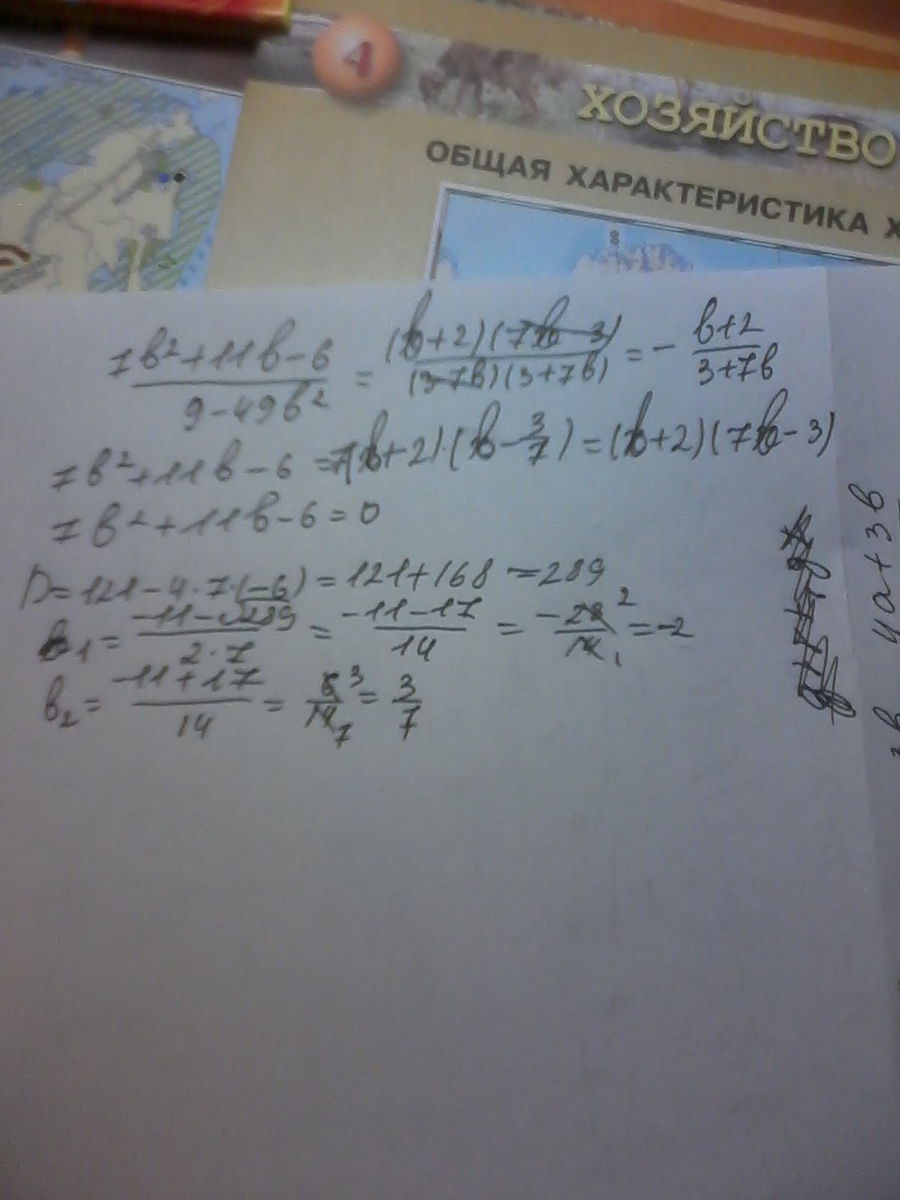 4
ХОЗЯЙСТВО
ОБЩАЯ ХАРАКТЕРИСТИКА Х
(7b²+11b-6)/(9-49b²) = ((b+2)(7b-3))/((3-7b)(3+7b)) = - (b+2)/(3+7b)
7b²+11b-6 = 7(b+2)·(b-3/7) = (b+2)(7b-3)
7b²+11b-6=0
D=121-4·7·(-6)=121+168=289
b₁ = (-11-√289)/(2·7) = (-11-17)/14 = -28/14 = -2
b₂ = (-11+17)/14 = 6/14 = 3/7
4a+3b